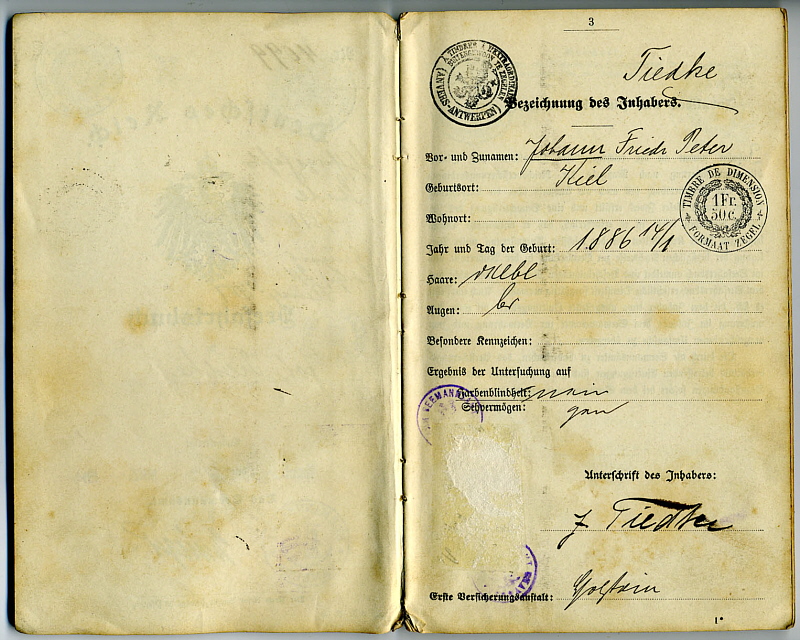 3
Tiedke
À TIMBRER À L'EXTRAORDINAIRE
BUITENGEWOON TE ZEGELEN
(ANVERS-ANTWERPEN)
Bezeichnung des Inhabers.
Vor- und Zunamen: Johann Friedr Peter
Geburtsort: Kiel
TIMBRE DE DIMENSION
1 Fr.
50 c.
FORMAAT ZEGEL
Wohnort:
Jahr und Tag der Geburt: 1886 14/1
Haare: dklbl
Augen: br
Besondere Kennzeichen:
Ergebnis der Untersuchung auf
Farbenblindheit:
SEEMANNS
Sehvermögen:
Unterschrift des Inhabers:
J Tiedke
Erste Versicherungsanstalt: Holstein
1*
4699